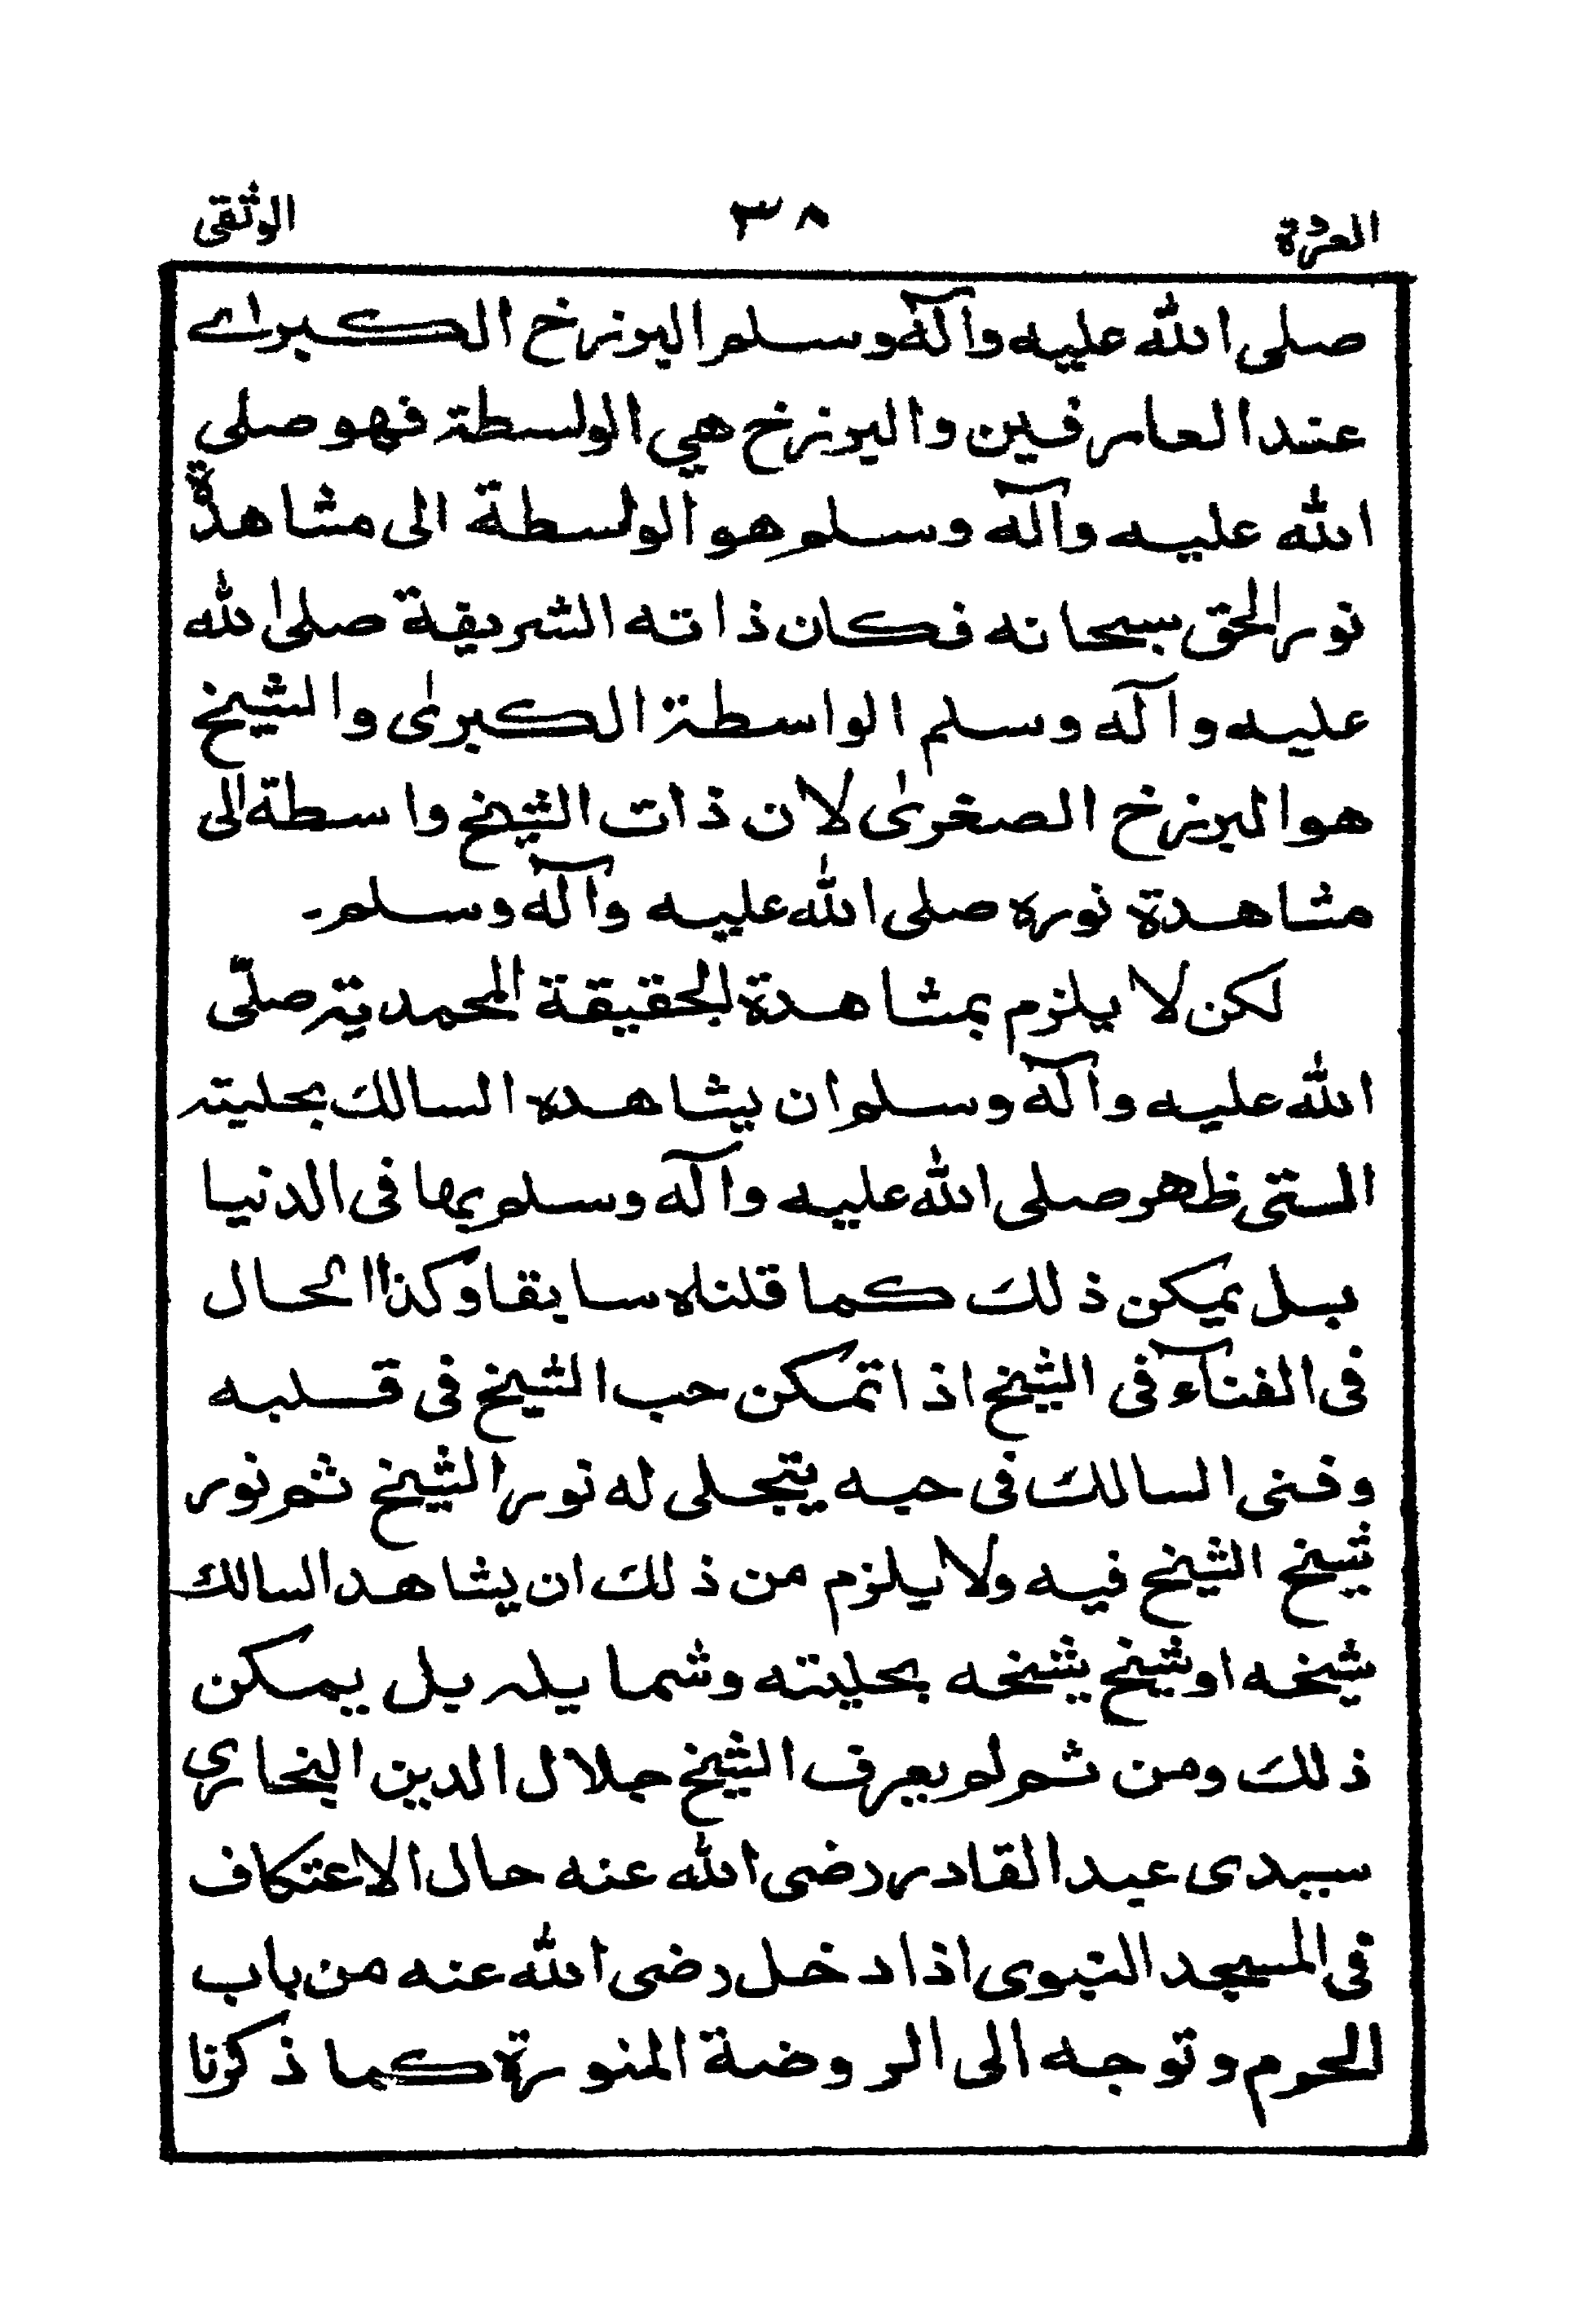 العروة ٣٨ الوثقى
صلى الله عليه وآله وسلم البرزخ الكبرىٰ
عند العارفين والبرزخ هي الواسطة فهو صلى
الله عليه وآله وسلم هو الواسطة الى مشاهدة
نور الحق سبحانه فكان ذاته الشريفة صلى الله
عليه وآله وسلم الواسطة الكبرىٰ والشيخ
هو البرزخ الصغرىٰ لان ذات الشيخ واسطة الى
مشاهدة نوره صلى الله عليه وآله وسلم۔
لكن لا يلزم بمشاهدة الحقيقة المحمدية صلّى
الله عليه وآله وسلم ان يشاهده السالك بحليته
المستى ظهر صلى الله عليه وآله وسلم بها فى الدنيا
بل يمكن ذلك كما قلناه سابقا وكذا الحال
فى الفنآء فى الشيخ اذا تمكن حب الشيخ فى قلبه
وفنى السالك فى حبه يتجلى له نور الشيخ ثم نور
شيخ الشيخ فيه ولا يلزم من ذلك ان يشاهد السالك
شيخه او شيخ شيخه بحليته وشمايله بل يمكن
ذلك ومن ثم لو يعرف الشيخ جلال الدين البخارى
سيدى عبد القادر رضى الله عنه حال الاعتكاف
فى المسجد النبوى اذا دخل رضى الله عنه من باب
الحرم وتوجه الى الروضة المنورة كما ذكرنا